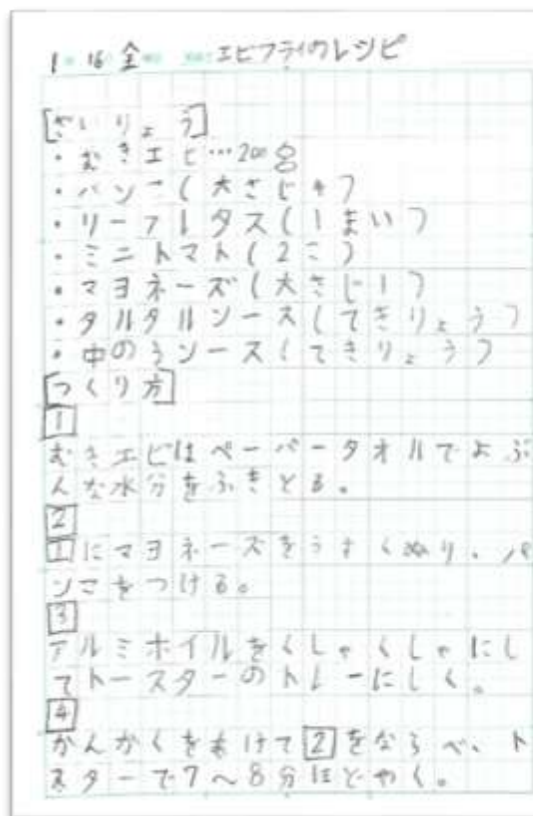 1 16 金 エビフライのレシピ
[ざいりょう]
・むきエビ…200g
・パンこ(大さじ4)
・リーフレタス(1まい)
・ミニトマト(2こ)
・マヨネーズ(大さじ1)
・タルタルソース(てきりょう)
・中のうソース(てきりょう)
[つくり方]
1
むきエビはペーパータオルでよぶ
んな水分をふきとる。
2
1にマヨネーズをうすくぬり、パ
ンコをつける。
3
アルミホイルをくしゃくしゃにし
てトースターのトレーにしく。
4
かんかくをあけて2をならべ、ト
スターで7〜8分ほどやく。